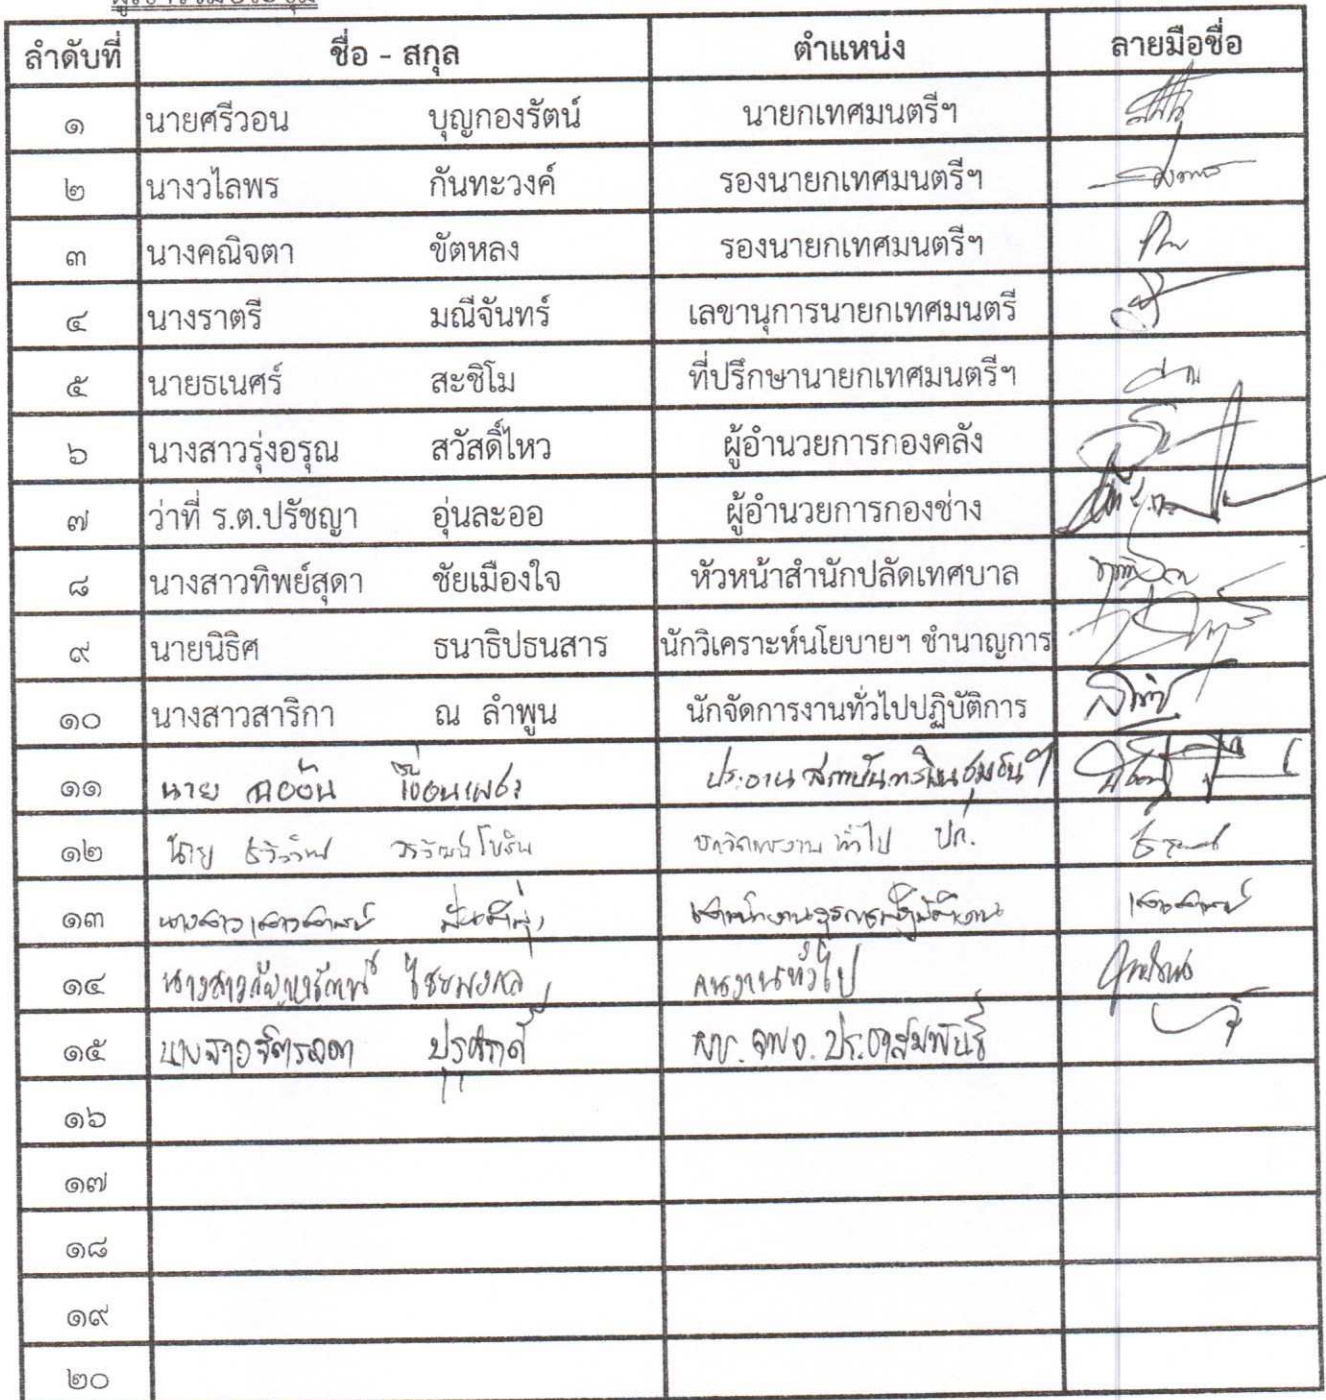 ผู้เข้าร่วมประชุม
ลำดับที่ ชื่อ - สกุล ตำแหน่ง ลายมือชื่อ
๑ นายศรีวอน บุญกองรัตน์ นายกเทศมนตรีฯ
๒ นางวไลพร กันทะวงค์ รองนายกเทศมนตรีฯ
๓ นางคณิจตา ขัตหลง รองนายกเทศมนตรีฯ
๔ นางราตรี มณีจันทร์ เลขานุการนายกเทศมนตรี
๕ นายธเนศร์ สะชิโม ที่ปรึกษานายกเทศมนตรีฯ
๖ นางสาวรุ่งอรุณ สวัสดิ์ไหว ผู้อำนวยการกองคลัง
๗ ว่าที่ ร.ต.ปรัชญา อุ่นละออ ผู้อำนวยการกองช่าง
๘ นางสาวทิพย์สุดา ชัยเมืองใจ หัวหน้าสำนักปลัดเทศบาล
๙ นายนิธิศ ธนาธิปธนสาร นักวิเคราะห์นโยบายฯ ชำนาญการ
๑๐ นางสาวสาริกา ณ ลำพูน นักจัดการงานทั่วไปปฏิบัติการ
๑๑ นาย ประธานสถาบันการเงินชุมชนฯ
๑๒ นาย ปก.
๑๓ นางสาว เจ้าพนักงานธุรการปฏิบัติงาน
๑๔ นางสาวกัญญารัตน์ ไชยมงคล คนงานทั่วไป
๑๕ นางสาวจิตรลดา ผช. จพง. ประชาสัมพันธ์
๑๖
๑๗
๑๘
๑๙
๒๐